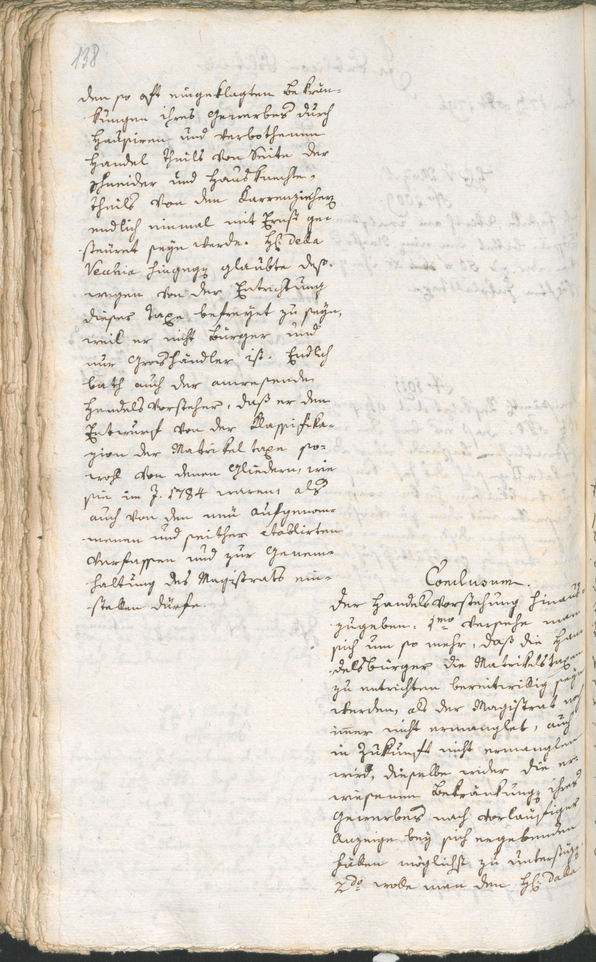 138
den so oft eingeklagten Bekrän-
kungen ihres Gewerbes durch
Hausiren und verbothenen
Handel theils von Seite der
Schneider und Hausknechte,
theils von den Karrenzieher
endlich einmal mit Ernst ge-
steuret seyn werde. H: Dalla
Vechia hingegen glaubte des-
wegen von der Entrichtung
dieser Taxe befreyet zu seyn,
weil er nicht Bürger und
nur Großhändler ist. Endlich
bath auch der anwesende
Handelsvorsteher, daß er den
Entwurf von der Klassifika-
zion der Matrikeltaxe so-
wohl von denen Gliedern, wie
sie im J. 1784 waren, als
auch von den neü aufgenom-
menen und seither etablirten
verfassen und zur Genem-
haltung des Magistrats ein-
stellen dürfe.
Conclusum.
Der Handelsvorstehung hinaus-
zugeben: 1mo versehe man
sich um so mehr, daß die Han-
delsbürger die Matrikelstaxen
zu entrichten bereitwillig seyn
werden, als der Magistrat
immer nicht ermanglet, auch
in Zukunft nicht ermanglen
wird, dieselbe wider die er-
wiesenen Bekränkungen ihres
Gewerbes nach vorläufiger
Anzeige bey sich ergebenden
Fällen möglichst zu unterstüz-
2do wolle man den H: Dalla